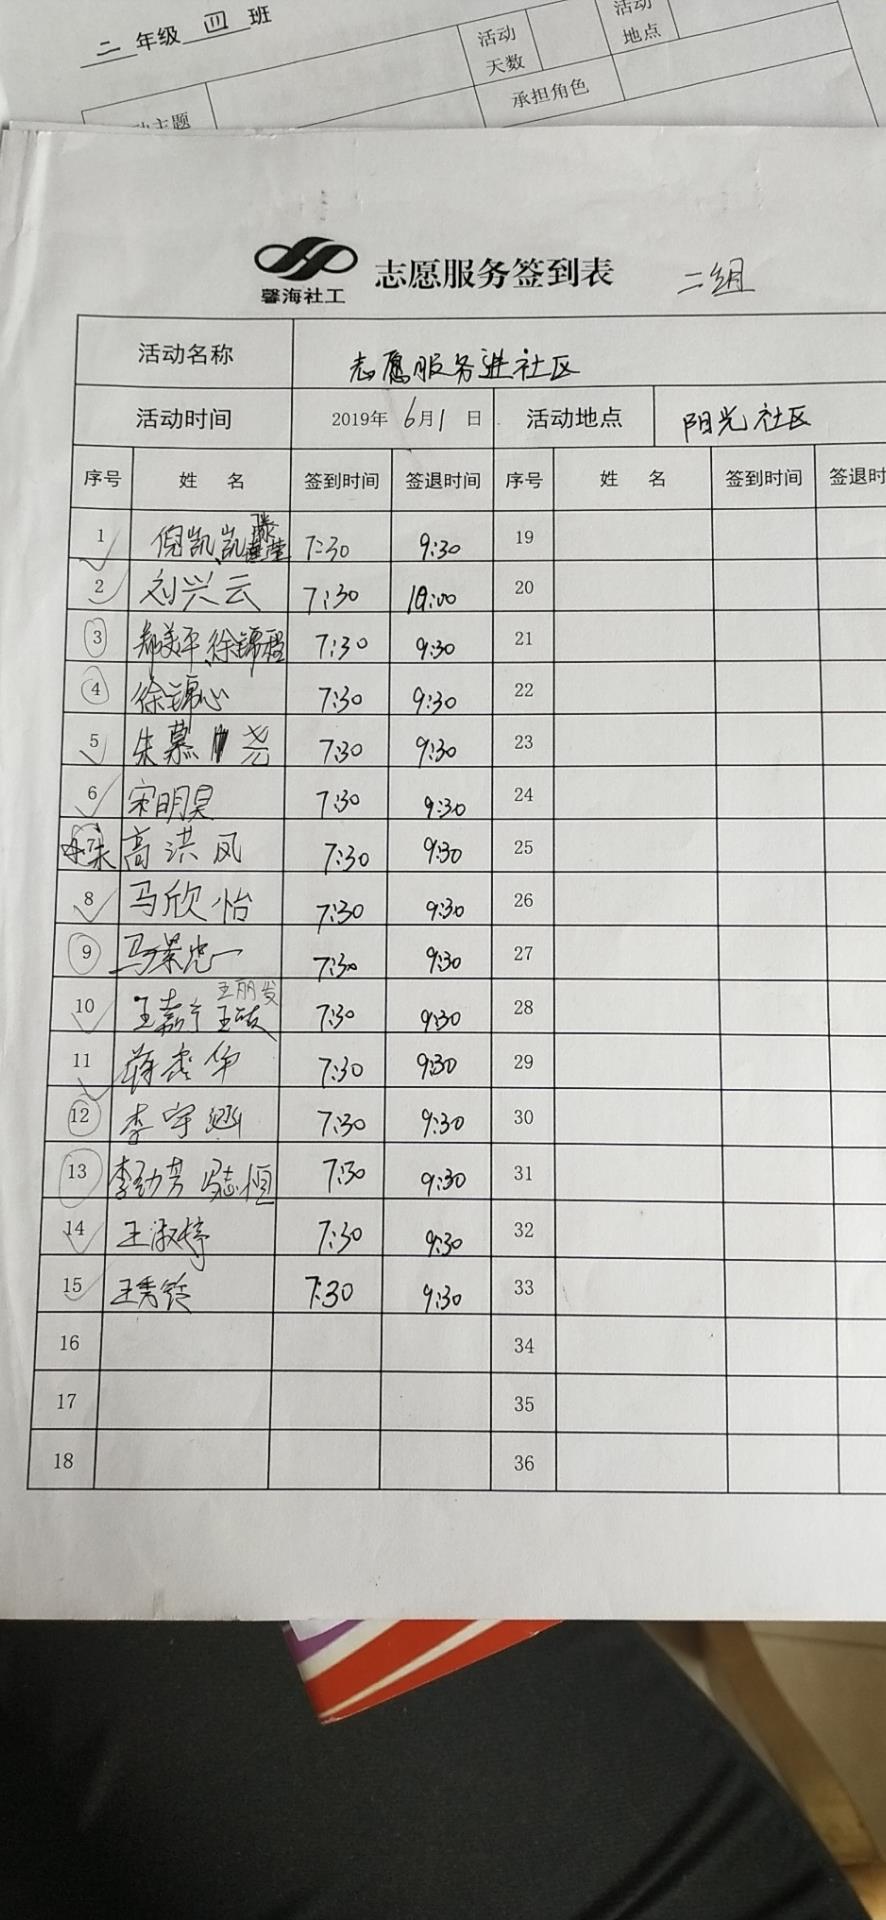 二 年级 四 班
活动天数
活动地点
承担角色
动主题
馨海社工 志愿服务签到表 二组
活动名称 志愿服务进社区
活动时间 2019年 6月1日 活动地点 阳光社区
序号 姓 名 签到时间 签退时间 序号 姓 名 签到时间 签退时
1 倪凯凯 7:30 9:30 19
2 刘兴云 7:30 10:00 20
3 郑美平、徐锦程 7:30 9:30 21
4 徐锦心 7:30 9:30 22
5 朱慕尧 7:30 9:30 23
6 宋明昊 7:30 9:30 24
高洪凤 7:30 9:30 25
8 马欣怡 7:30 9:30 26
9 马景忠 7:30 9:30 27
10 王嘉宁 王丽发 7:30 9:30 28
11 7:30 9:30 29
12 李宇 7:30 9:30 30
13 李劲芳 冯志恒 7:30 9:30 31
14 王淑婷 7:30 9:30 32
15 王秀铃 7:30 9:30 33
16 34
17 35
18 36